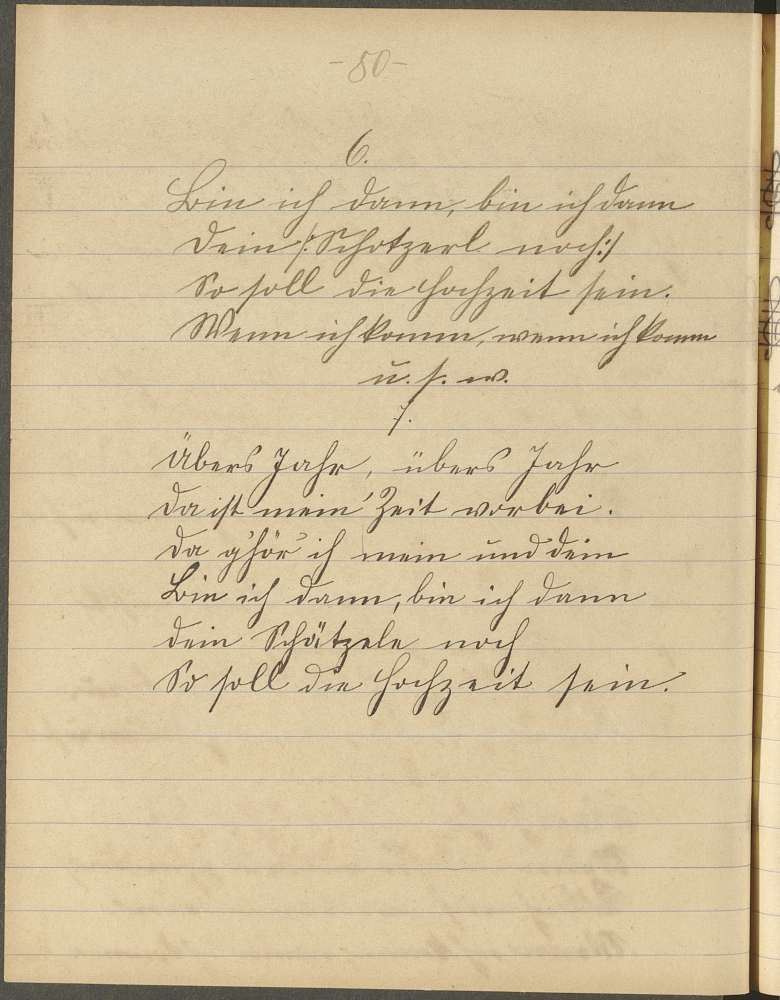 -50-
6.
Bin ich dann, bin ich dann
Dein /:Schatzerl noch:/
So soll die Hochzeit sein.
Wenn ich komm, wenn ich komm
u. s. w.
7.
Übers Jahr, übers Jahr
Da ist mein Zeit vorbei.
Da g'hör' ich mein und dein
Bin ich dann, bin ich dann
dein Schätzele noch
So soll die Hochzeit sein.